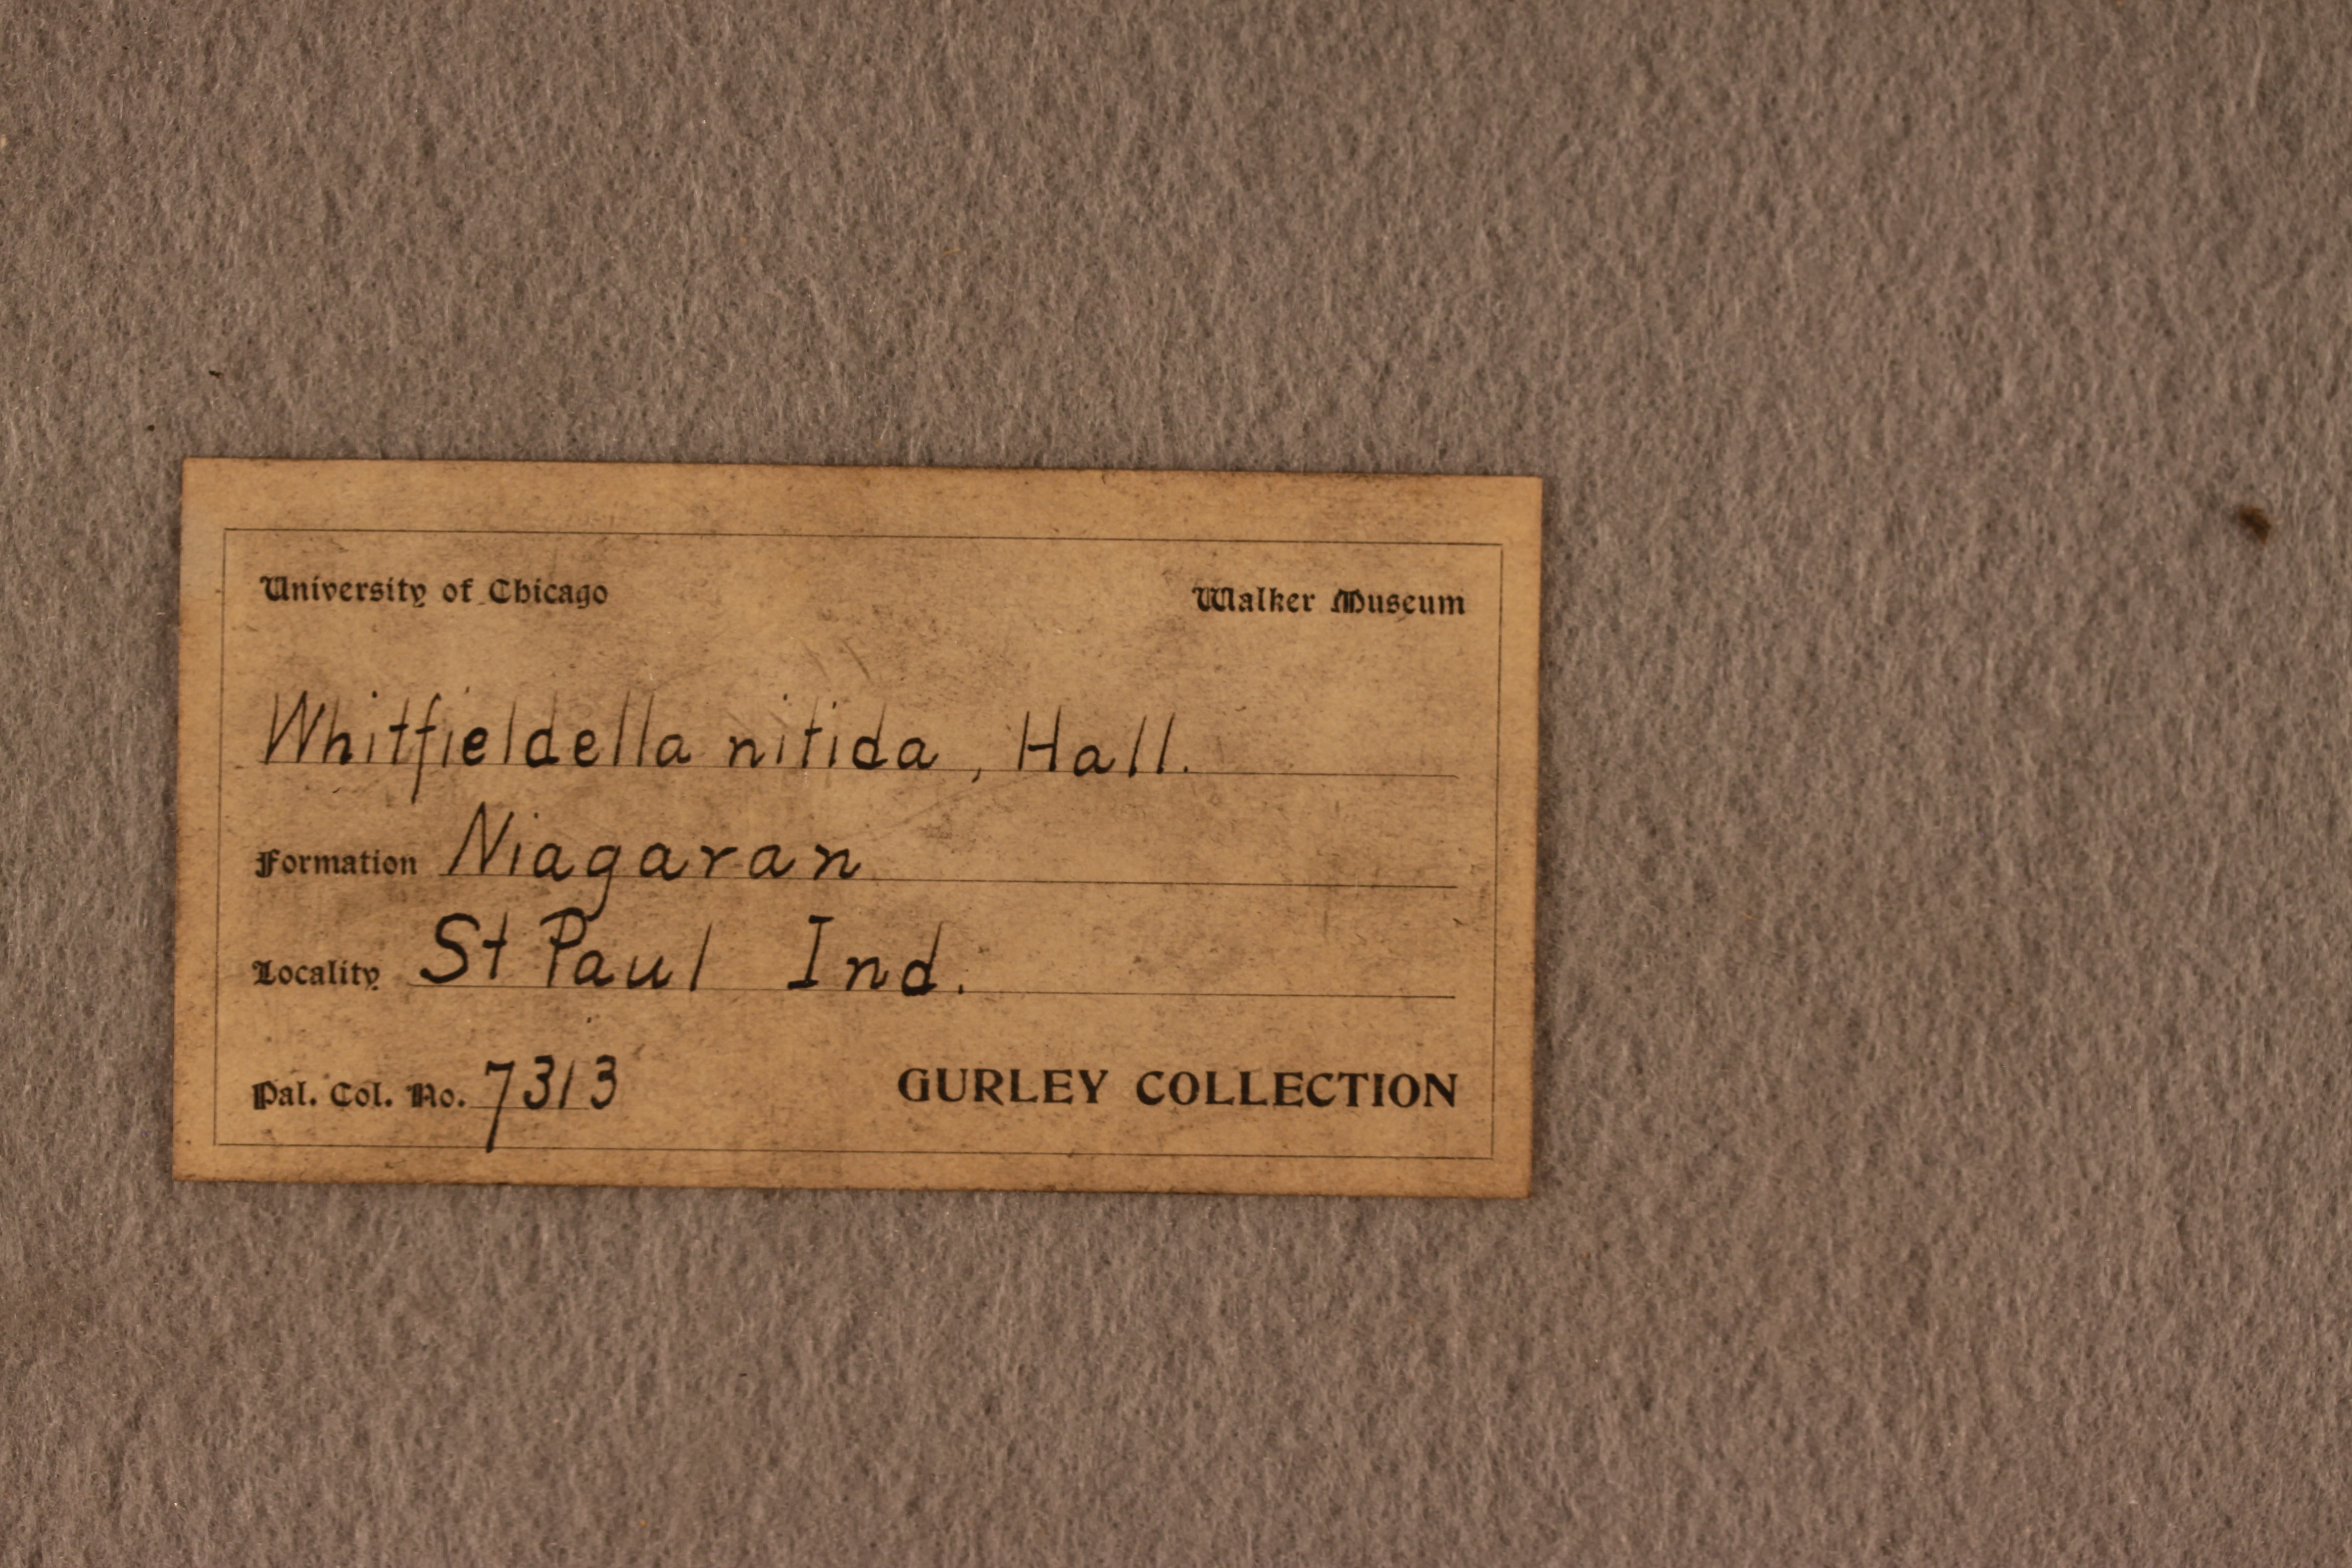 University of Chicago Walker Museum
Whitfieldella nitida, Hall.
Formation Niagaran
Locality St Paul Ind.
Pal. Col. No. 7313 GURLEY COLLECTION